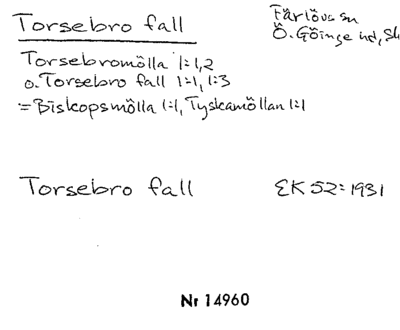 Torsebro fall
Färlövs sn
Ö. Göinge hd, Sk
Torsebromölla 1:1,2
o. Torsebro fall 1:1, 1:3
= Biskopsmölla 1:1, Tyskamöllan 1:1
Torsebro fall
EK 52:1931
Nr 14960